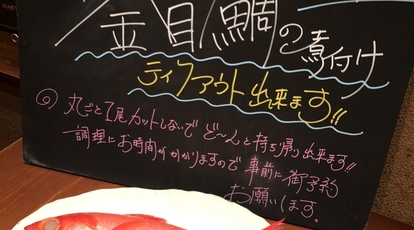 金目鯛の煮付け
テイクアウト出来ます!!
◎丸ごと1尾カットしないでど〜んと持ち帰り出来ます!!
調理にお時間がかかりますので事前に御予約
お願いします。